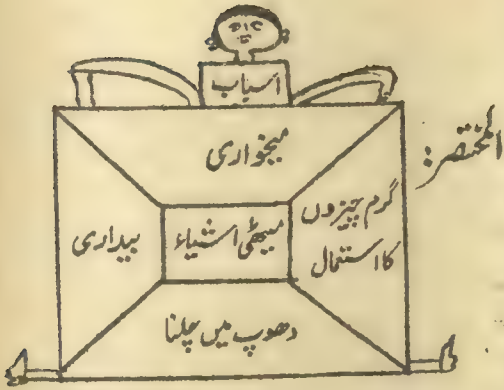 اسباب
المختصر:
میخواری
گرم چیزوں
کا استمال
میٹھی اشیاء
بیداری
دھوپ میں چلنا